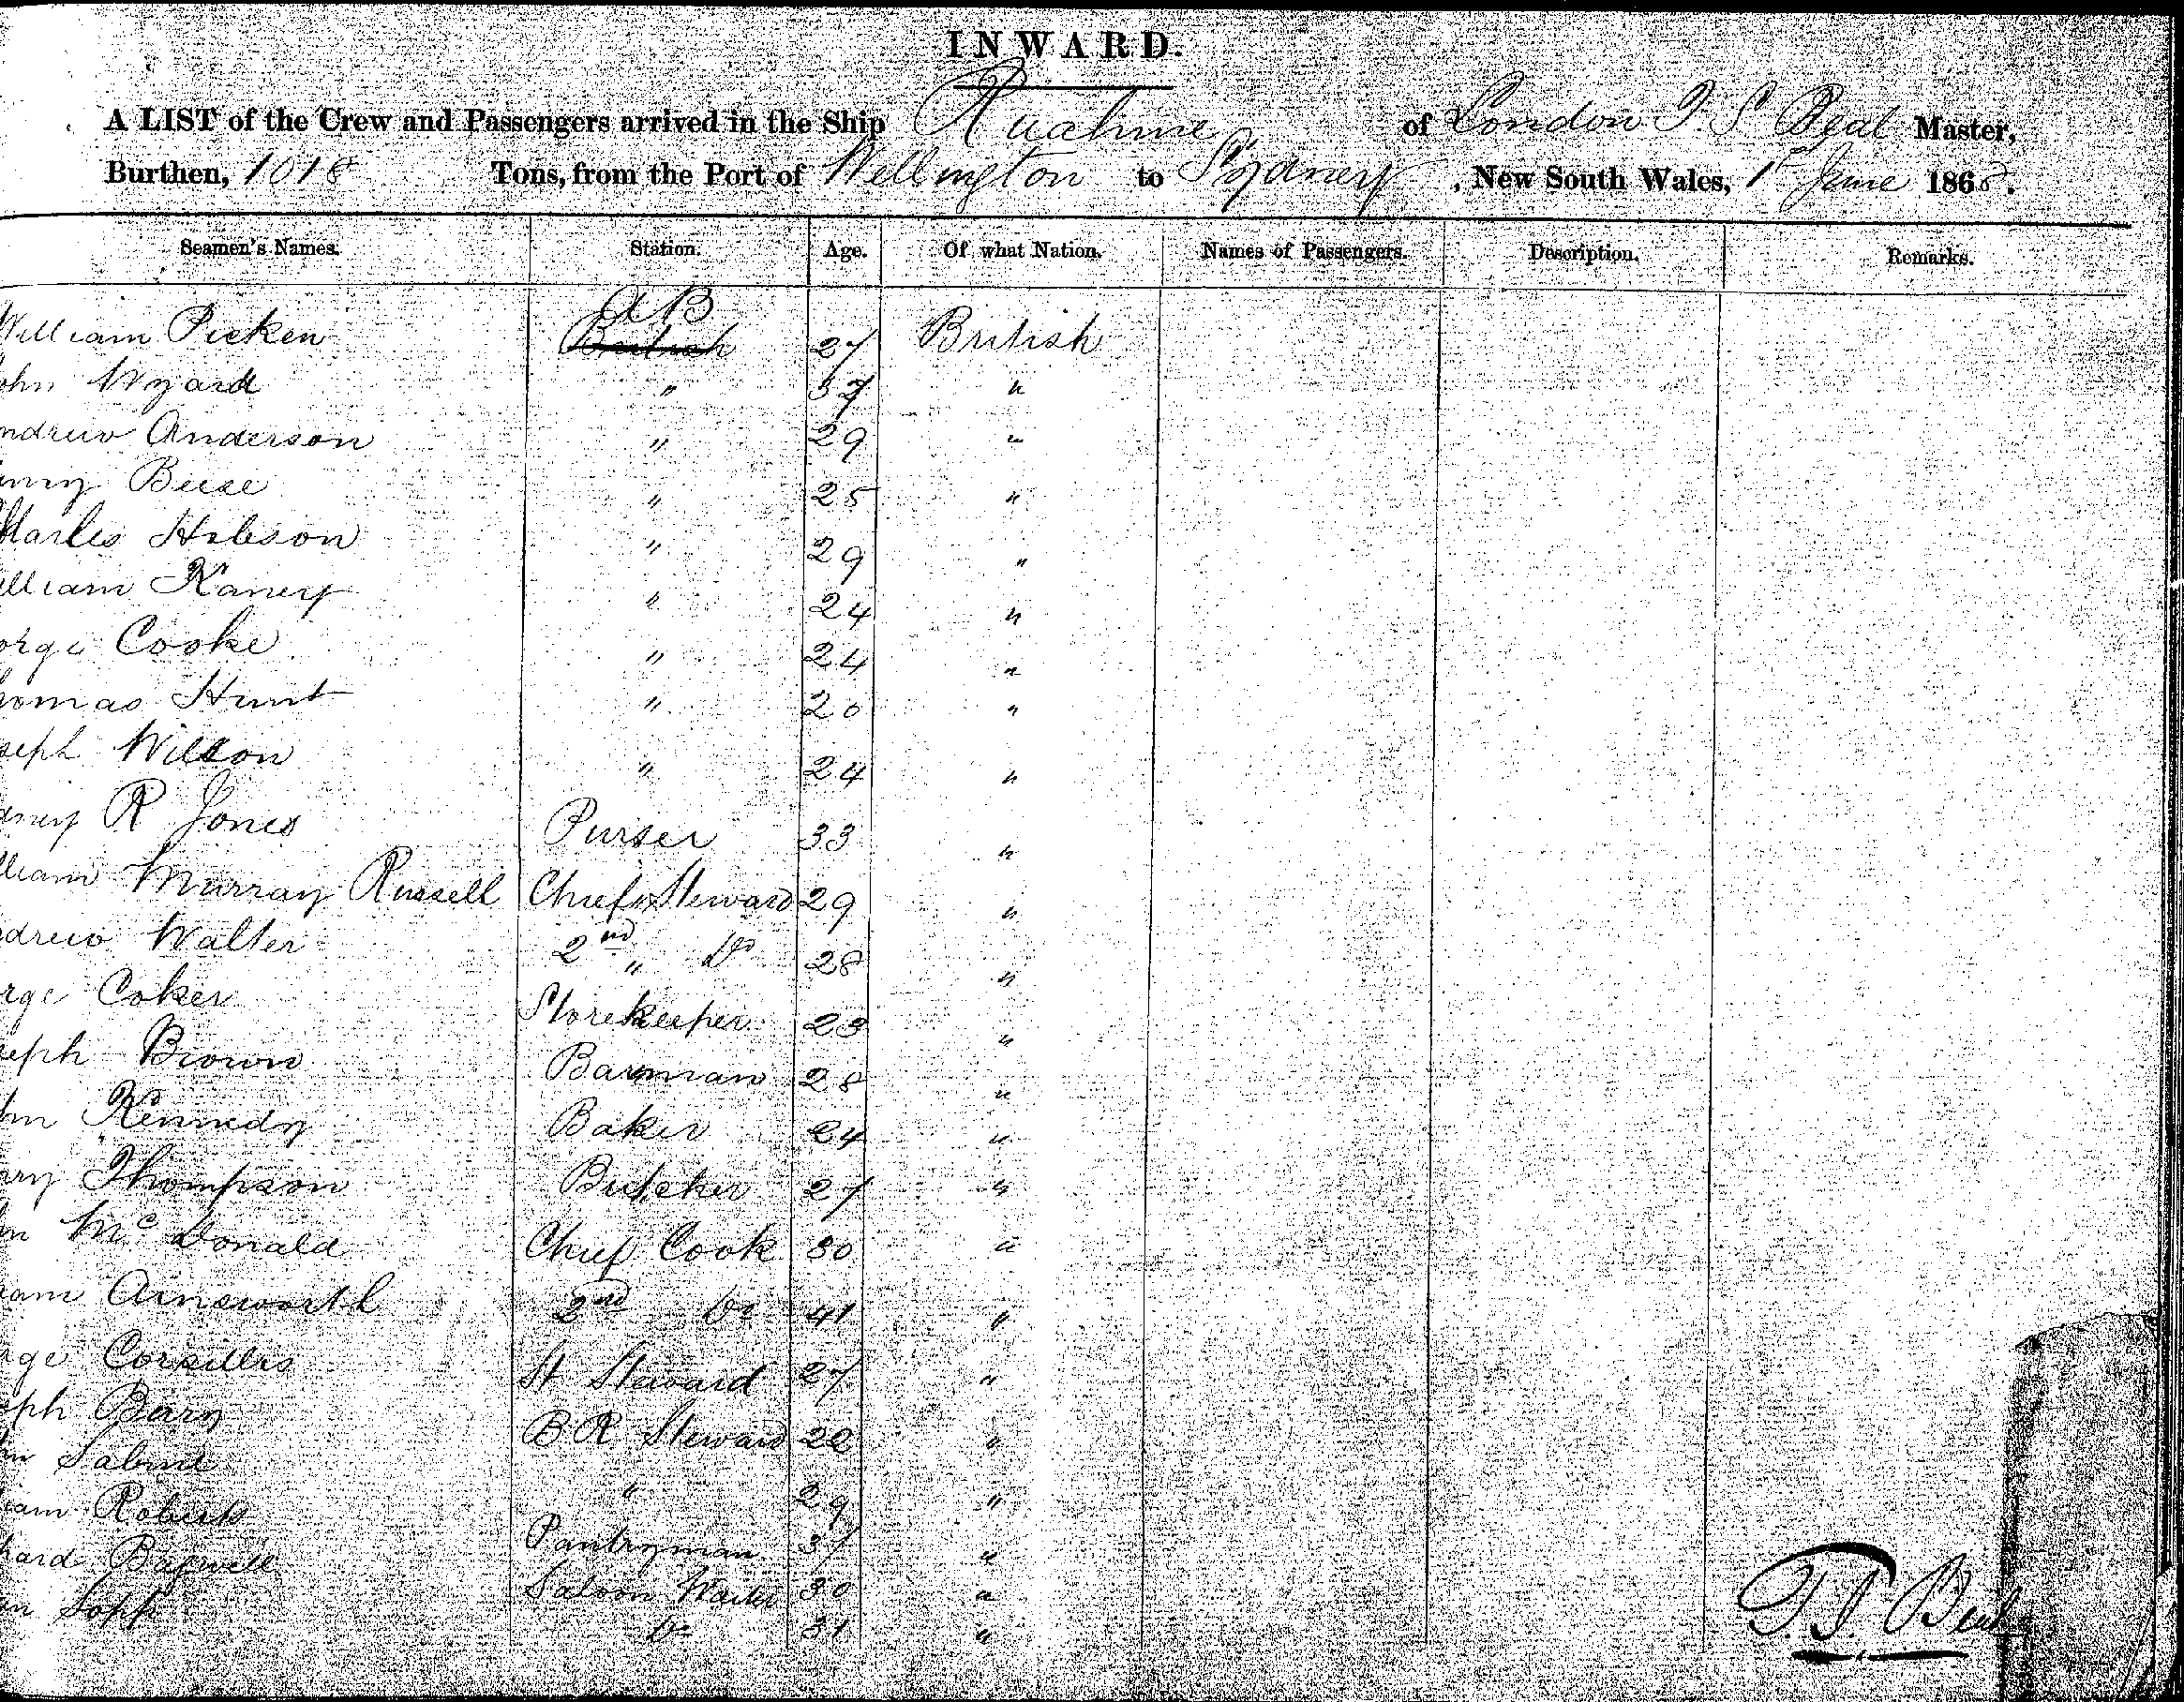 INWARD.
A LIST of the Crew and Passengers arrived in the Ship Ruahine of London T. S Beal Master,
Burthen, 1018 Tons, from the Port of Wellington to Sydney, New South Wales, 1st June 1868.
Seamen's Names. Station. Age. Of what Nation. Names of Passengers. Description. Remarks.
AB
William Picken British 27 British
ohn Wyard " 37 "
ndrew Anderson " 29 "
enry Beese " 25 "
Charles Hobson " 29 "
illiam Raney " 24 "
orge Cooke " 24 "
homas Hunt " 20 "
seph Wilson " 24 "
dney R Jones Purser 33 "
lliam Murray Russell Chief Steward 29 "
drew Walter 2nd " Do 28 "
rge Coker Storekeeper 23 "
seph Brown Barman 28 "
hn Kennedy Baker 24 "
nry Thompson Butcher 27 "
hn McDonald Chief Cook 30 "
iam Ainsworth 2nd Do 41 "
rge Corsellis St Steward 27 "
eph Bary B R Steward 22 "
hn Sabine " 29 "
iam Roberts Pantryman 37 "
hard Bagwell Saloon Waiter 30 "
hn Sopp Do 31 "
T. S. Beal